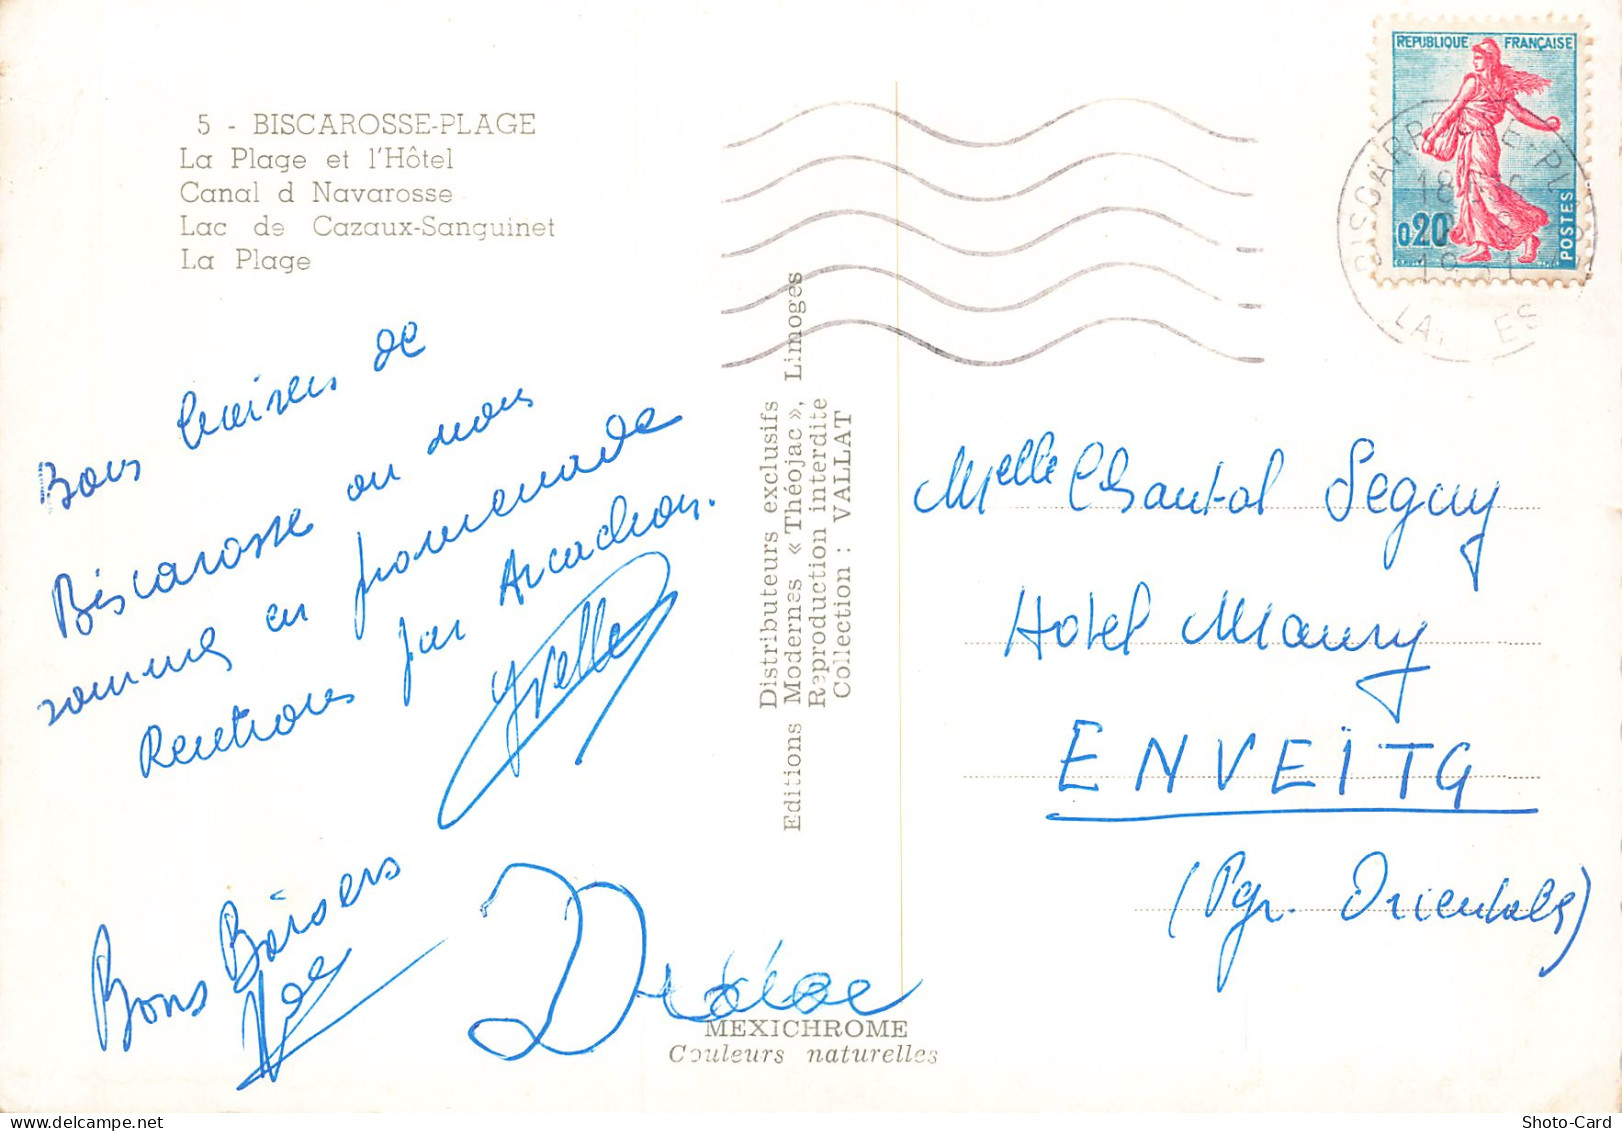 5 - BISCAROSSE-PLAGE
La Plage et l'Hôtel
Canal d Navarosse
Lac de Cazaux-Sanguinet
La Plage
Bons baisers de
Biscarosse ou nous
sommes en promenade
Rentrons par Arcachon.
Yvelle
Bons Baisers
Distributeurs exclusifs
Editions Modernes « Théojac », Limoges
Reproduction interdite
Collection : VALLAT
MEXICHROME
Couleurs naturelles
REPUBLIQUE FRANÇAISE
0,20
POSTES
BISCARROSSE-PLAGE
LANDES
Melle Chantal Seguy
Hotel Maury
ENVEITG
(Pyr. Orientales)
Shoto-Card